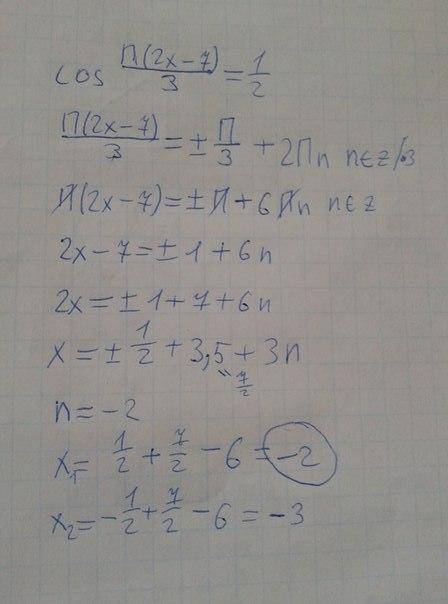 cos П(2x-7)/3 = 1/2
П(2x-7)/3 = ± П/3 + 2Пn n∈z /·3
П(2x-7) = ± П + 6Пn n∈z
2x-7 = ± 1 + 6n
2x = ± 1 + 7 + 6n
x = ± 1/2 + 3,5 + 3n
" 7/2
n = -2
x₁ = 1/2 + 7/2 - 6 = -2
x₂ = - 1/2 + 7/2 - 6 = -3